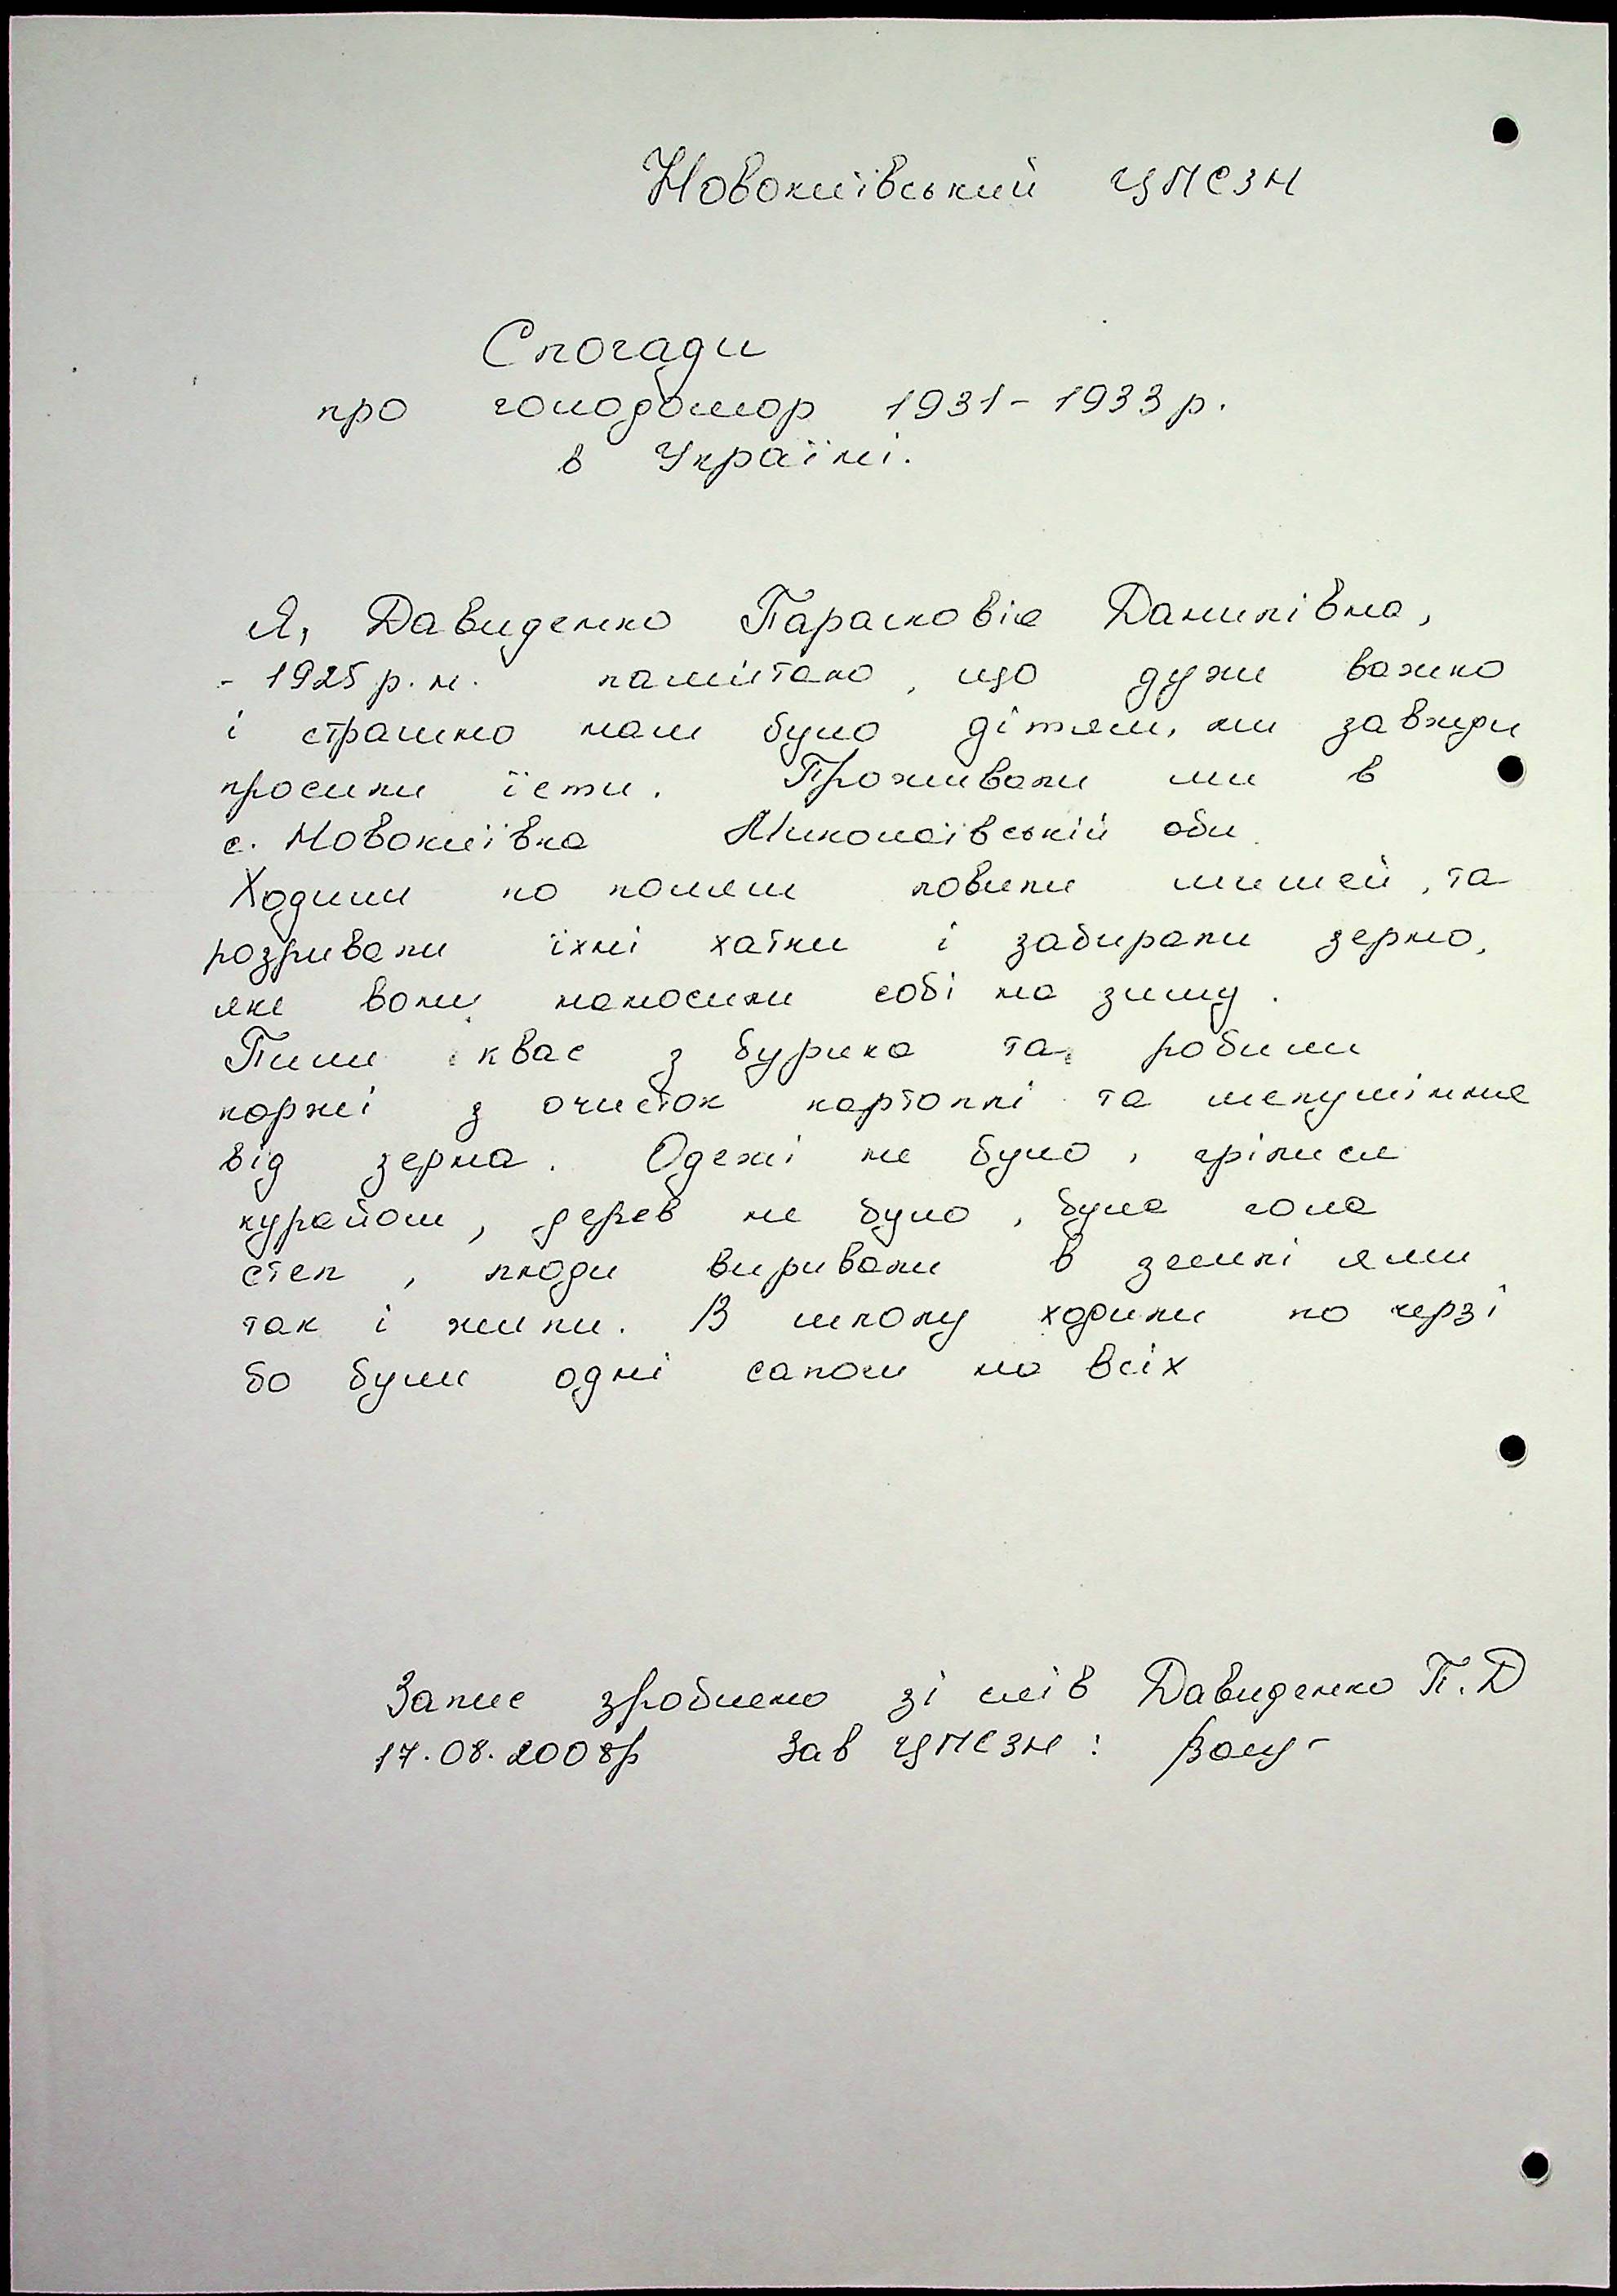 Новокиївський ЦПСЗН
Спогади
про голодомор 1931-1933 р.
в Україні.
Я, Давиденко Парасковія Данилівна,
- 1925 р.н. памʼятаю, що дуже важко
і страшно нам було дітям, ми завжди
просили їсти. Проживали ми в
с. Новокиївка Миколаївській обл.
Ходили по полям ловили мишей, та
розривали їхні хатки і забирали зерно,
яке вони наносили собі на зиму.
Пили квас з буряка та робили
коржі з очисток картоплі та шелушіння
від зерна. Одежі не було, грілися
курайом, дерев не було, була гола
степ, люди виривали в землі ями
так і жили. В школу ходили по черзі
бо були одні сапоги на всіх
Запис зроблено зі слів Давиденко П.Д
17.08.2008р Зав ЦПСЗН: